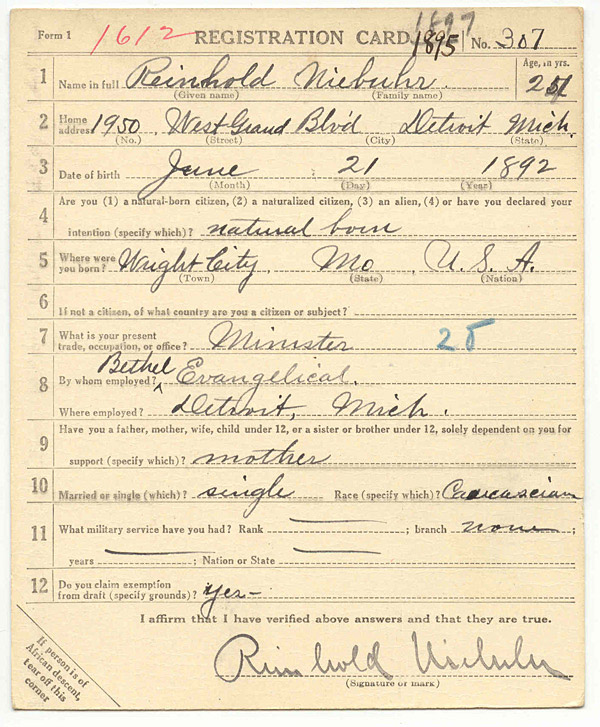 1897
Form 1 1612 REGISTRATION CARD 1895 No. 307
1 Name in full Reinhold Niebuhr. Age, in yrs. 25
(Given name) (Family name)
2 Home address 1950 West Grand Blvd Detroit Mich.
(No.) (Street) (City) (State)
3 Date of birth June 21 1892
(Month) (Day) (Year)
Are you (1) a natural-born citizen, (2) a naturalized citizen, (3) an alien, (4) or have you declared your
4 intention (specify which)? natural born
5 Where were you born? Wright City, Mo, U. S. A.
(Town) (State) (Nation)
6 If not a citizen, of what country are you a citizen or subject?
7 What is your present trade, occupation, or office? Minister 25
8 By whom employed? Bethel Evangelical.
Where employed? Detroit, Mich.
Have you a father, mother, wife, child under 12, or a sister or brother under 12, solely dependent on you for
9 support (specify which)? mother
10 Married or single (which)? single Race (specify which)? Caucascian
11 What military service have you had? Rank ; branch none ;
years ; Nation or State
12 Do you claim exemption from draft (specify grounds)? yes-
I affirm that I have verified above answers and that they are true.
Reinhold Niebuhr
(Signature or mark)
If person is of
African descent,
tear off this
corner